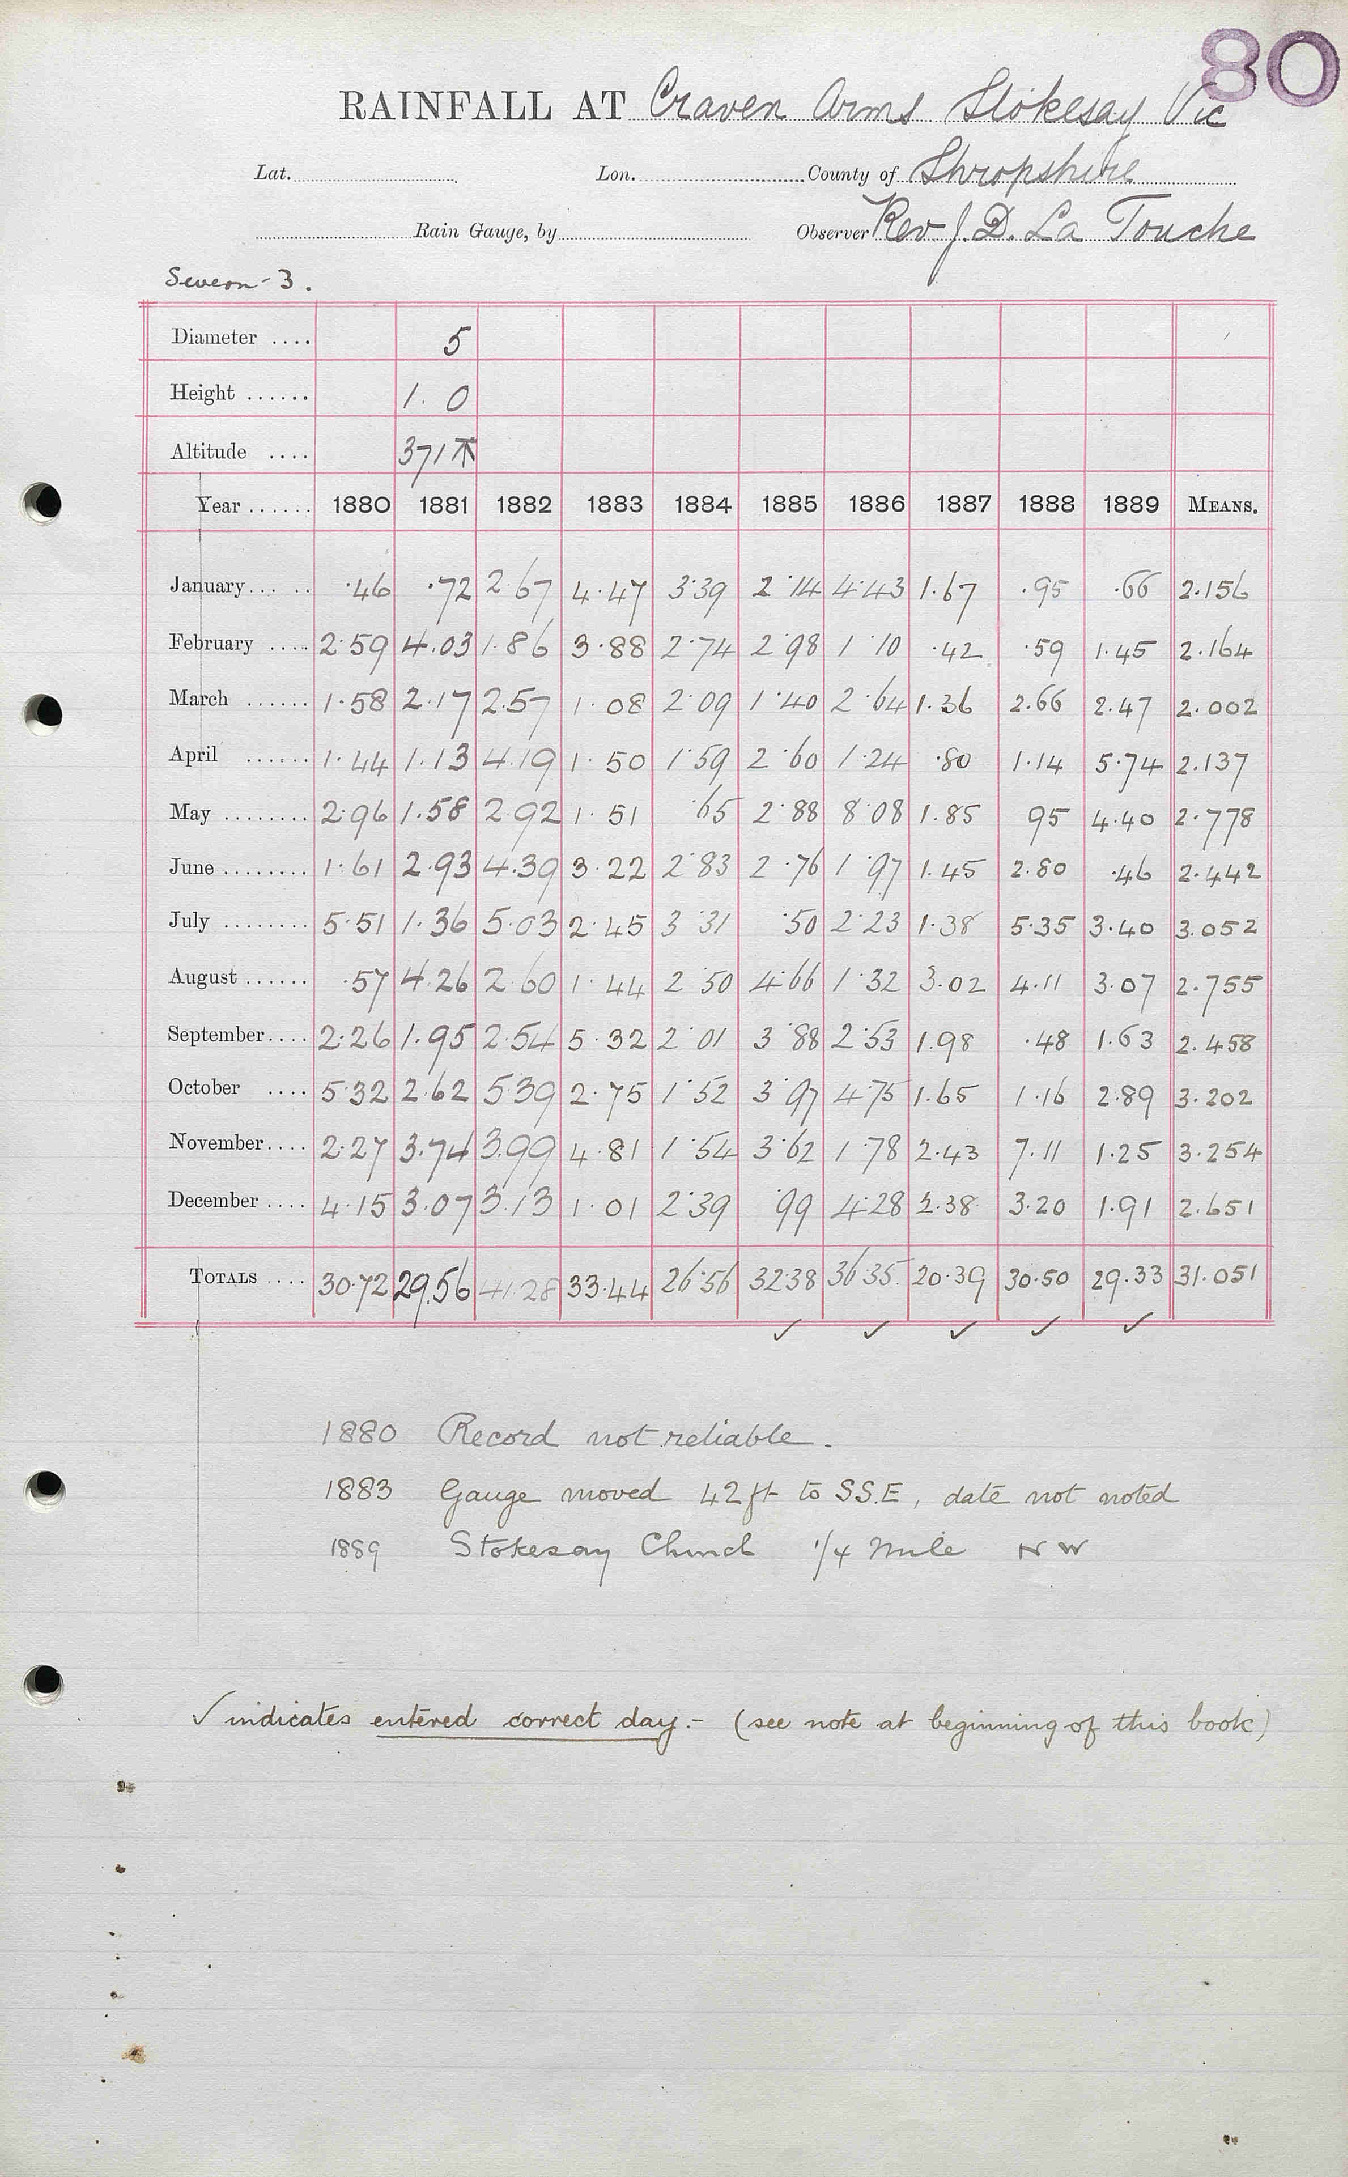 80
RAINFALL AT Craven Arms Stokesay Vic
Lat. Lon. County of Shropshire
Rain Gauge, by Observer Rev J. D. La Touche
Severn - 3.
Diameter .... 5
Height ...... 1. 0
Altitude .... 371
Year ...... 1880 1881 1882 1883 1884 1885 1886 1887 1888 1889 MEANS.
January .... .46 .72 2.67 4.47 3.39 2.14 4.43 1.67 .95 .66 2.156
February .... 2.59 4.03 1.86 3.88 2.74 2.98 1.10 .42 .59 1.45 2.164
March ...... 1.58 2.17 2.57 1.08 2.09 1.40 2.64 1.36 2.66 2.47 2.002
April ...... 1.44 1.13 4.19 1.50 1.59 2.60 1.24 .80 1.14 5.74 2.137
May ........ 2.96 1.58 2.92 1.51 .65 2.88 8.08 1.85 95 4.40 2.778
June ........ 1.61 2.93 4.39 3.22 2.83 2.76 1.97 1.45 2.80 .46 2.442
July ........ 5.51 1.36 5.03 2.45 3.31 .50 2.23 1.38 5.35 3.40 3.052
August ...... .57 4.26 2.60 1.44 2.50 4.66 1.32 3.02 4.11 3.07 2.755
September .... 2.26 1.95 2.54 5.32 2.01 3.88 2.53 1.98 .48 1.63 2.458
October .... 5.32 2.62 5.39 2.75 1.52 3.97 4.75 1.65 1.16 2.89 3.202
November .... 2.27 3.74 3.99 4.81 1.54 3.62 1.78 2.43 7.11 1.25 3.254
December .... 4.15 3.07 3.13 1.01 2.39 .99 4.28 2.38 3.20 1.91 2.651
TOTALS .... 30.72 29.56 41.28 33.44 26.56 32.38 36.35 20.39 30.50 29.33 31.051
✓ ✓ ✓ ✓ ✓
1880 Record not reliable.
1883 Gauge moved 42 ft to SS.E, date not noted
1889 Stokesay Church 1/4 mile NW
✓ indicates entered correct day. - (see note at beginning of this book)